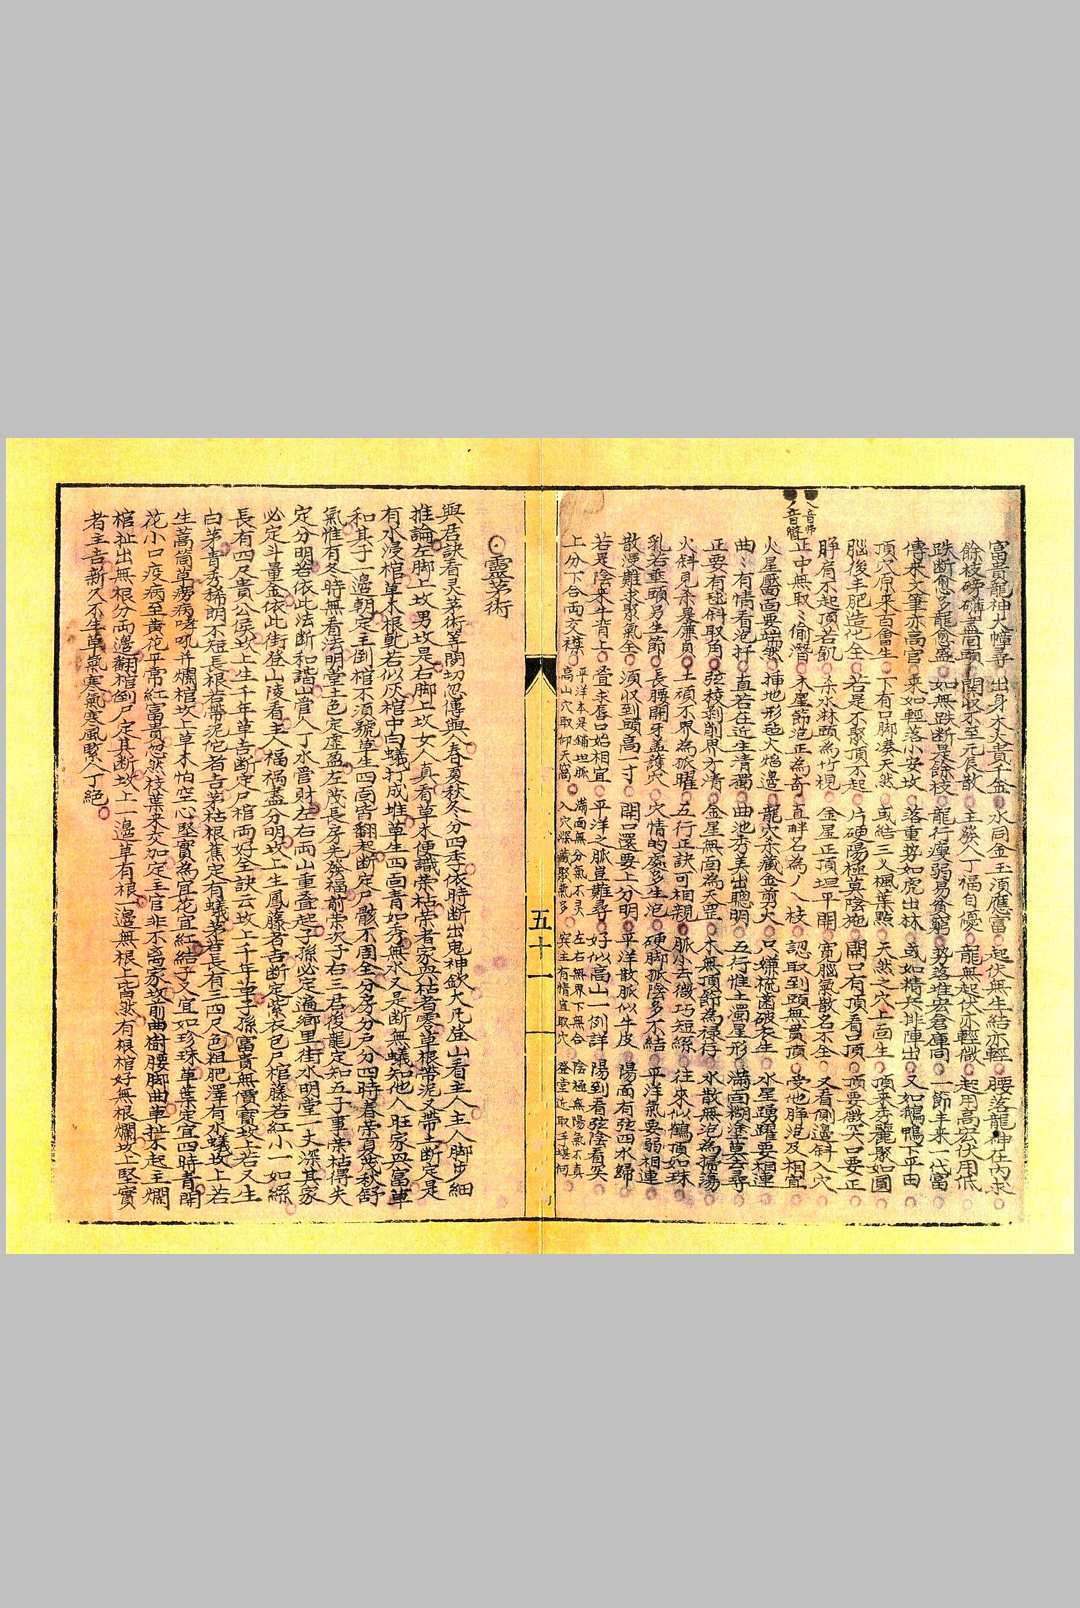 富貴龍神大幛尋　出身木火貴千金　水同金土須應富　起伏無生結亦輕　腰落龍神在內求
餘枝磅礴盡回頭　開收不至元辰散　主發人丁福自優　龍無起伏亦輕微　起用高公伏用低
跌斷愈多龍愈盛　如無跌斷是餘枝　龍行瘦弱易貧窮　勇落堆宏倉庫同　一節手來一代富
傳來文筆亦高官　來如輕落小安坟　落重勇如虎出林　或如精兵排陣出　又如鵝鴨下平由
頂穴原來百會生　下有口脚湊天然　或結三乂楓葉㸃　天然之穴上面生　頂來秀麗聚如圓
腦後手肥造化全　若是不聚頂不起　片硬陽極莫陰施　開口有頂看口頂　頂要微突口要正
胖肩不起頂若飢　杀水淋頭為竹梘　金星正頂坦平開　寬腦氣散名不全　又看側邊斜入穴
正中無取取偷潛　木星節泡正為奇　直畔名為人入枝　認取到頭無貫頂　受他胖泡及相宜
火星壓面要端然　挿地形毡火焰邊　龍穴杀藏金剪火　只嫌梳齒破灰生　水星踴躍要相連
曲曲有情看泡扦　直若在近生清濁　曲池秀美出聰明　五行惟土濁星形　滿面糊塗莫去尋
正要有毬斜取角　弦稜剥削界方清　金星無面為天罡　木無頂節為祿存　水散無泡為掃蕩
火斜見杀是廉貞　土頑不界為孤曜　五行正訣可相親　脈小去微巧短絲　往來似鶴頂如珠
乳若垂頭另生節　長腰開牙盖護穴　穴情的蔡多生泡　硬脚孤陰多不結　平洋氣要弱相連
散漫難求聚氣全　須收到頭高一寸　開口還要上分明　平洋散脈似牛皮　陽面有弦四水歸
若是陰來牛背上　查求唇口始相宜　平洋之脈豈難尋　好似高山一例詳　陽到看弦陰看突
上分下合兩交襟　平洋本是鋪坦脈　滿面無分氣不灵　左右無界下無合　陰極無陽氣不真
高山穴取仰天窩　入穴深藏聚氣多　突主有情宜取穴　登堂近取手堪何
五十一
靈茅術
與君訣看灵茅術　等閒切忽傳與人　春夏秋冬分四季　依時断出鬼神欽　大凡登山看主人　主人脚步細
推論　左脚上坟男坟是　右脚上坟女人真　看草木便識榮枯　榮者家興枯者零　草根帶泥又帶土　断定是
有水浸棺　草木根乾若似灰　棺中白蟻打成堆　草生四面青如秀　無水又是断無蟻　知他人旺家興富　草
和其子一邊朝　定主到棺不須號　草生四面皆翻起　断定尸骸不周全　分房分戸分四時　春榮夏茂秋舒
氣　惟有冬時無看法　明堂土色定虛盈　左茂長房先發福　前榮次子右三君　後龍定知五子事　榮枯得失
定分明　若依此法断和諧　山管人丁水管財　左右兩山重查起　子孫必定遍鄉里　街水明堂一丈深　其家
必定斗量金　依此街登山陵看　主人福禍盡分明　坟上生鳳藤者吉　断定紫衣包尸棺　藤若紅小一如絲
長有四尺貴公侯　坟上生千年草吉　断定尸棺両好全　訣云坟上千年草　子孫富貴無價寶　坟上若又生
白茅　青秀稀朗不短長　根若帶泥佗者吉　茅枯根蕉定有蟻　茅若長有三四尺　色粗肥澤有水蟻　坟上若
生蒿筒草　癆病哮吼并爛棺　坟上草木怕空心　堅實為宜花宜紅　結子又宜如珍珠　草葉定宜四時青　開
花小口疫病至　黄花平常紅富貴　忽然枝葉来交加　定主官非不害家　坟前曲樹腰脚曲　草扯不起主爛
棺　扯出無根分両邊　翻棺倒尸定其断　坟上一邊草有根　一邊無根上皆然　有根棺好無根爛　坟上堅實
者主吉　新久不生草氣寒　氣寒風緊人丁絕